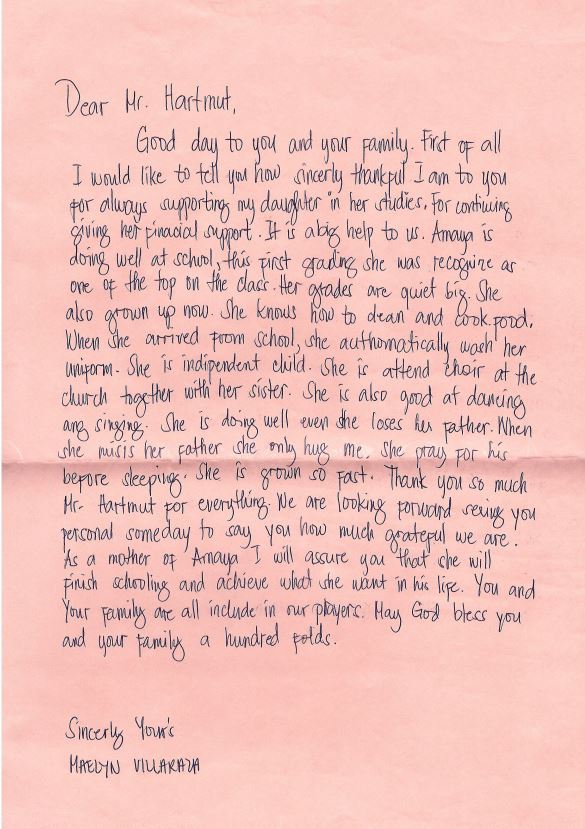 Dear Mr. Hartmut,
Good day to you and your family. First of all
I would like to tell you how sincerly thankful I am to you
for always supporting my daughter in her studies, for continuing
giving her finacial support. It is a big help to us. Amaya is
doing well at school, this first grading she was recognize as
one of the top on the class. Her grades are quiet big. She
also grown up now. She knows how to clean and cook food.
When she arrived from school, she authomatically wash her
uniform. She is indipendent child. She is attend choir at the
church together with her sister. She is also good at dancing
ang singing. She is doing well even she loses her father. When
she misis her father she only hug me. She pray for his
before sleeping. She is grown so fast. Thank you so much
Mr. Hartmut for everything. We are looking forward seeing you
personal someday to say you how much grateful we are.
As a mother of Amaya I will assure you that she will
finish schooling and achieve what she want in his life. You and
Your family are all include in our players. May God bless you
and your family a hundred folds.
Sincerly Your's
MAELYN VILLARAZA